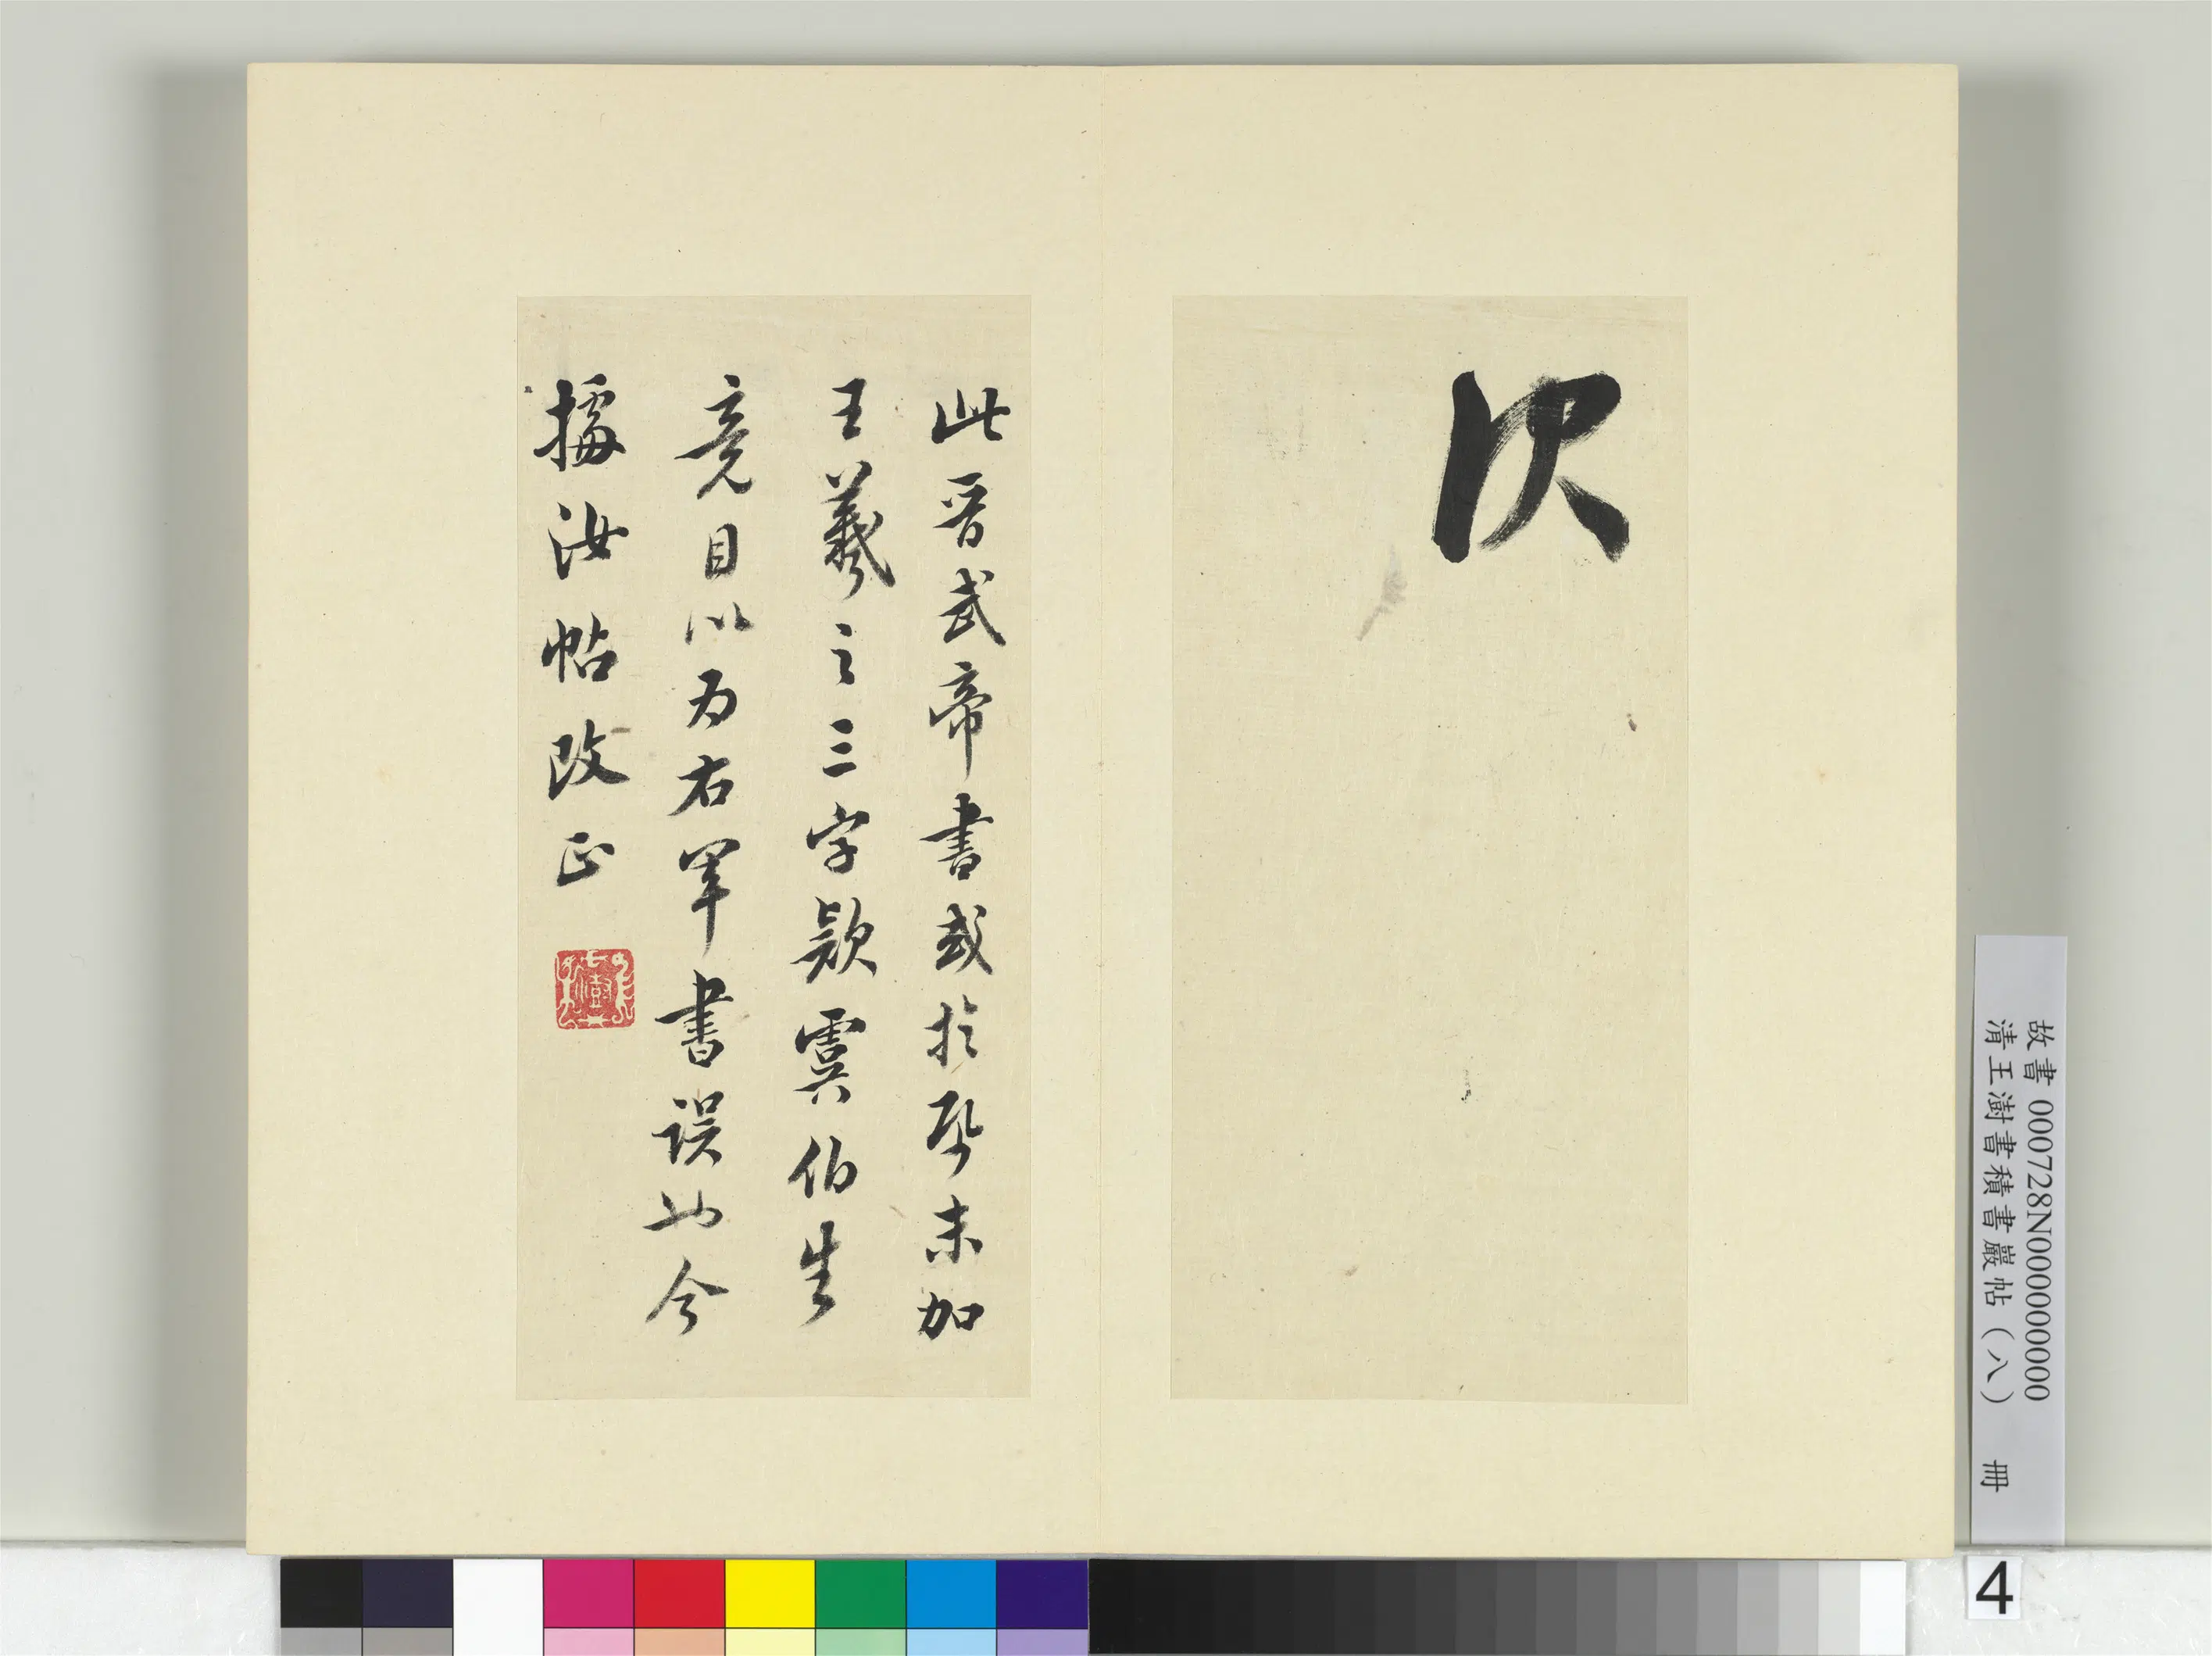 此晉武帝書或於末加
王羲之三字款虞伯生
竟目以为右軍書誤也今
據汝帖改正
故書 000728N000000000
清王澍書積書巖帖(八) 冊
4